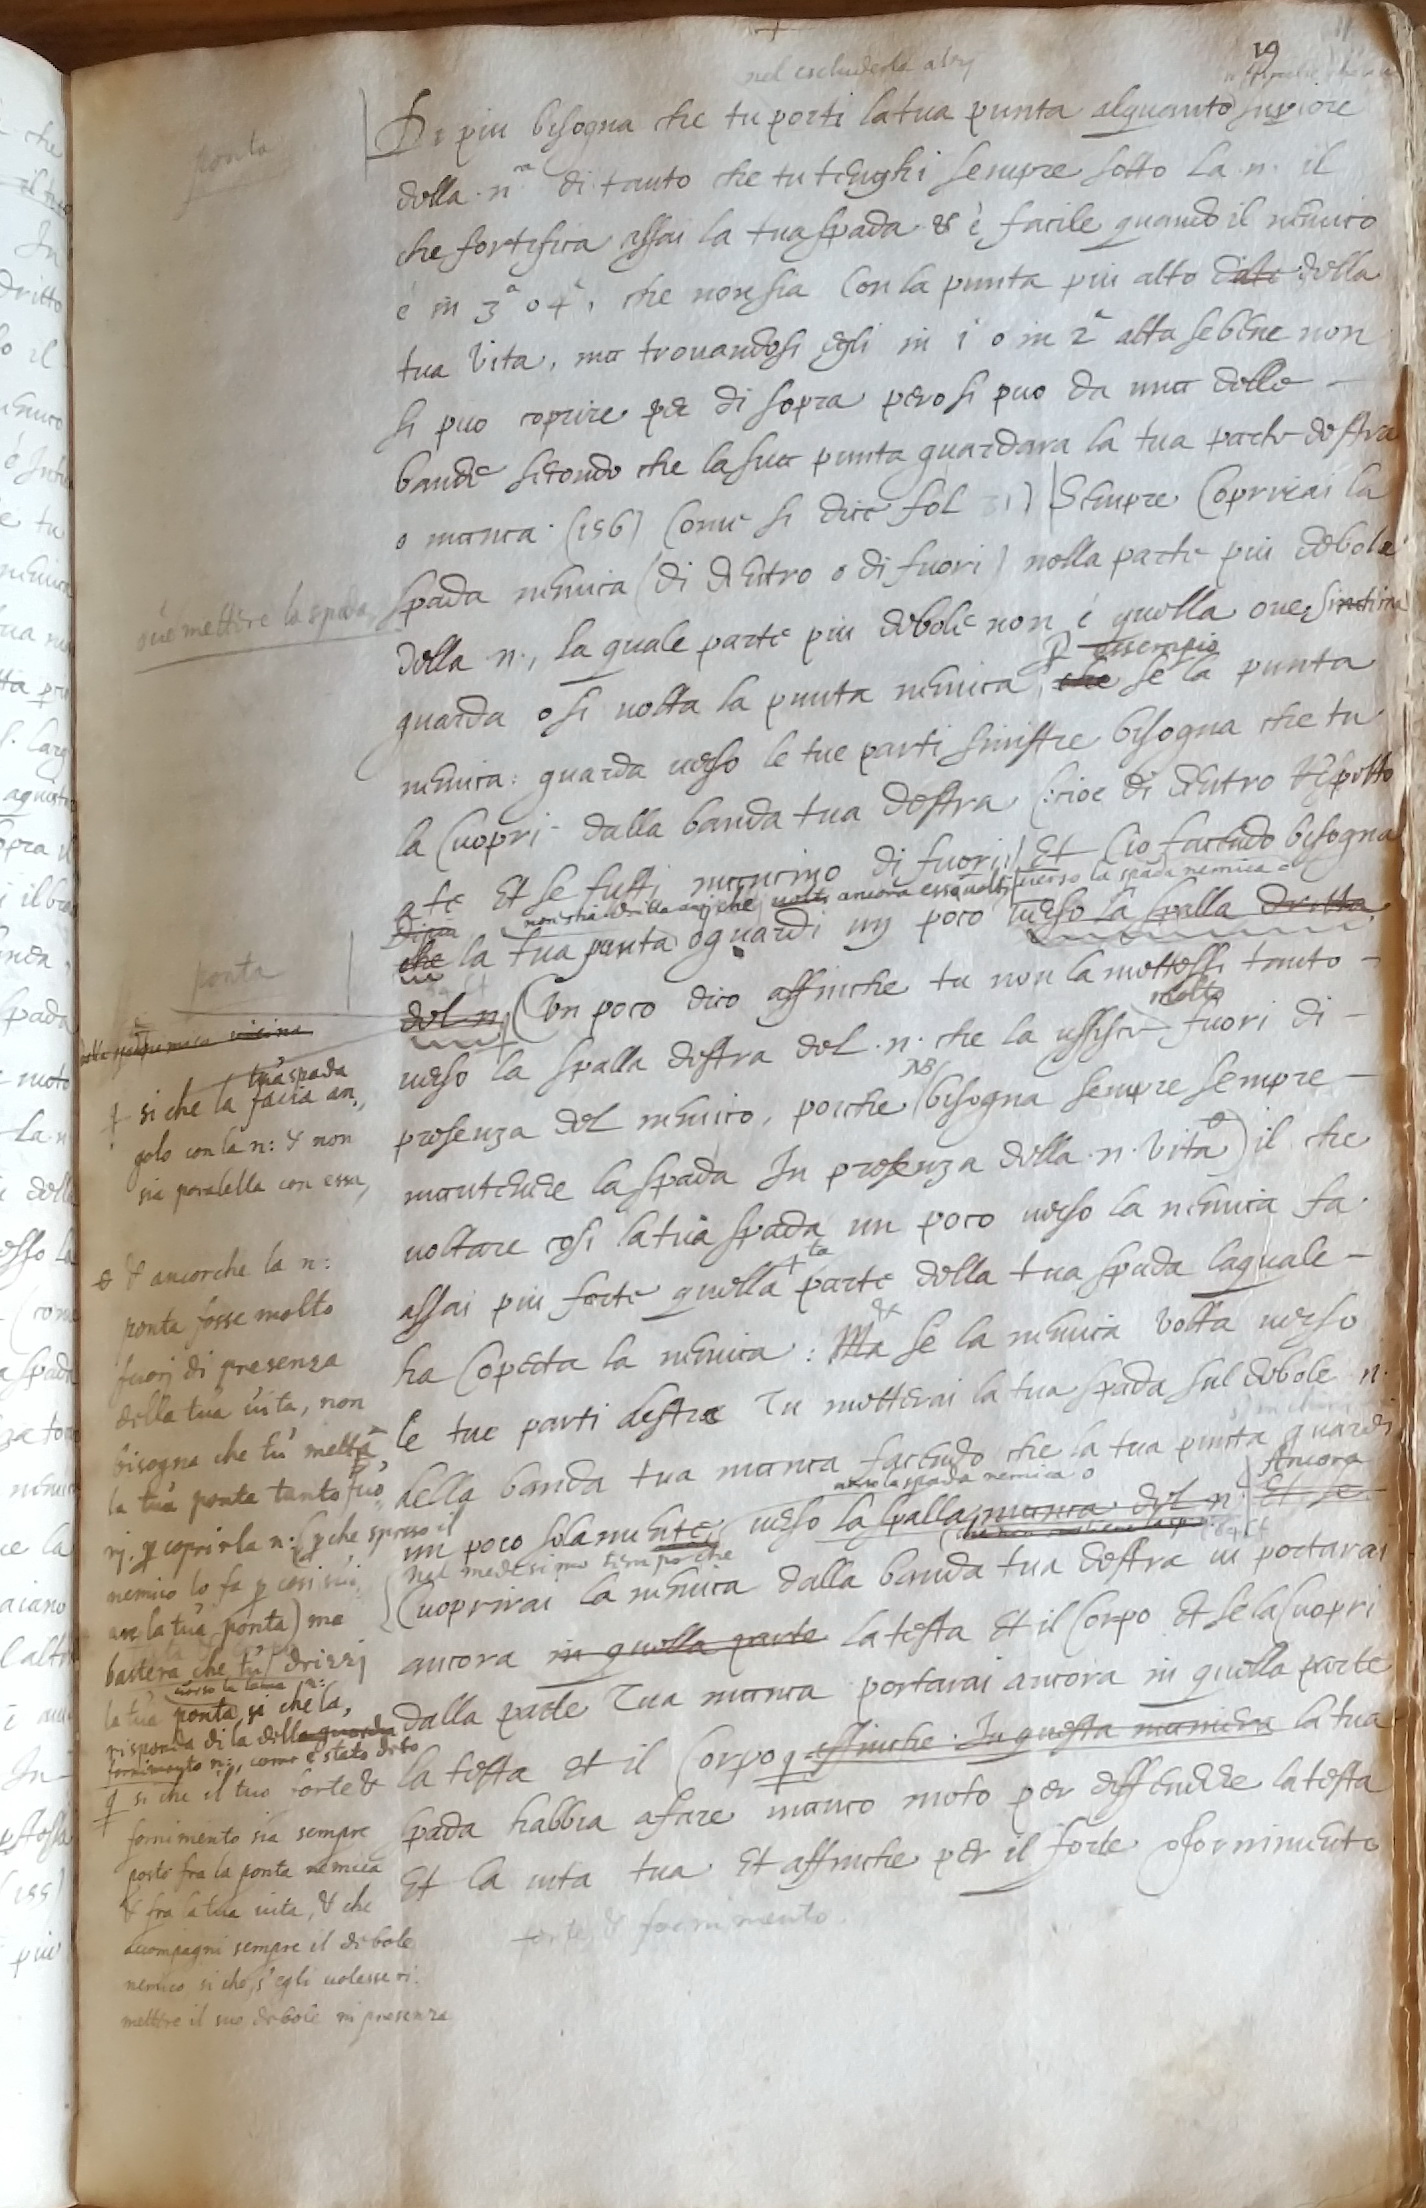 19
nel escluderla
ponta
Di piu bisogna che tu porti la tua punta alquanto supiore
della .n.ra di tanto che tu tenghi sempre sotto la .n. il
che fortifica assai la tua spada & è facile quando il nemico
è in 3a o 4a, che non sia con la punta piu alto della
tua vita, ma trovandosi egli in 1 o in 2a alta se bene non
si puo coprire per di sopra pero si puo da una delle
bande secondo che la sua punta guardara la tua parte destra
o manca. (156) Come si dice fol 31) Sempre coprirai la
ove mettere la spada
spada nemica (di dentro o di fuori) nella parte piu debole
della .n., la quale parte piu debole non è quella ove
guarda o si volta la punta nemica, che se la punta
p essempio
nemica: guarda verso le tue parti sinistre bisogna che tu
la cuopri dalla banda tua destra (:cioe di dentro rispetto
a te Et se fussi mancino di fuori:) Et cio facendo bisogna
non stia dritta che volti ancora essa verso la spada nemica o
che la tua punta guardi un poco verso la spalla dritta
ponta
del n. (Un poco dico affinche tu non la mettessi tanto
verso la spalla destra del .n. che la uscisse molto fuori di
presenza del nemico, poiche NB (bisogna sempre sempre
mantenere la spada In presenza della .n. vita) il che
voltare cosi la tua spada un poco verso la nemica fa
assai piu forte quella 4ta parte della tua spada laquale
ha coperta la nemica: Ma & se la nemica volta verso
le tue parti destre Tu metterai la tua spada sul debole n.
della banda tua manca facendo che la tua punta guardi
verso la spada nemica o
un poco solamente verso la spalla manca del n. Et se
Ancora
nel medesimo tempo che
Cuoprirai la nemica dalla banda tua destra vi portarai
ancora in quella parte la testa Et il Corpo Et se la cuopri
dalla parte Tua manca portarai ancora in quella parte
la testa et il Corpo affinche In questa maniera la tua
spada habbia a fare manco moto per diffendere la testa
Et la vita tua Et affinche per il forte o fornimento
forte & fornimento
si che la tua spada facia an,
golo con la n: & non
sia paralella con essa,
& ancorche la n:
ponta fosse molto
fuori di presenza
della tua vita, non
bisogna che tu metta
la tua ponta tanto fuo,
rj. p coprir la n: (p che spesso il
nemico lo fa p cosi svi,
are la tua ponta) ma
bastera che tu drizzj
verso la lama n:
la tua ponta, si che la,
risponda di la della guardia
fornimento n:, come è stato detto
si che il tuo forte &
fornimento sia sempre
posto fra la ponta nemica
& fra la tua vita, & che
accompagni sempre il debole
nemico si che, s'egli volesse ri,
mettere il suo debole in presenza